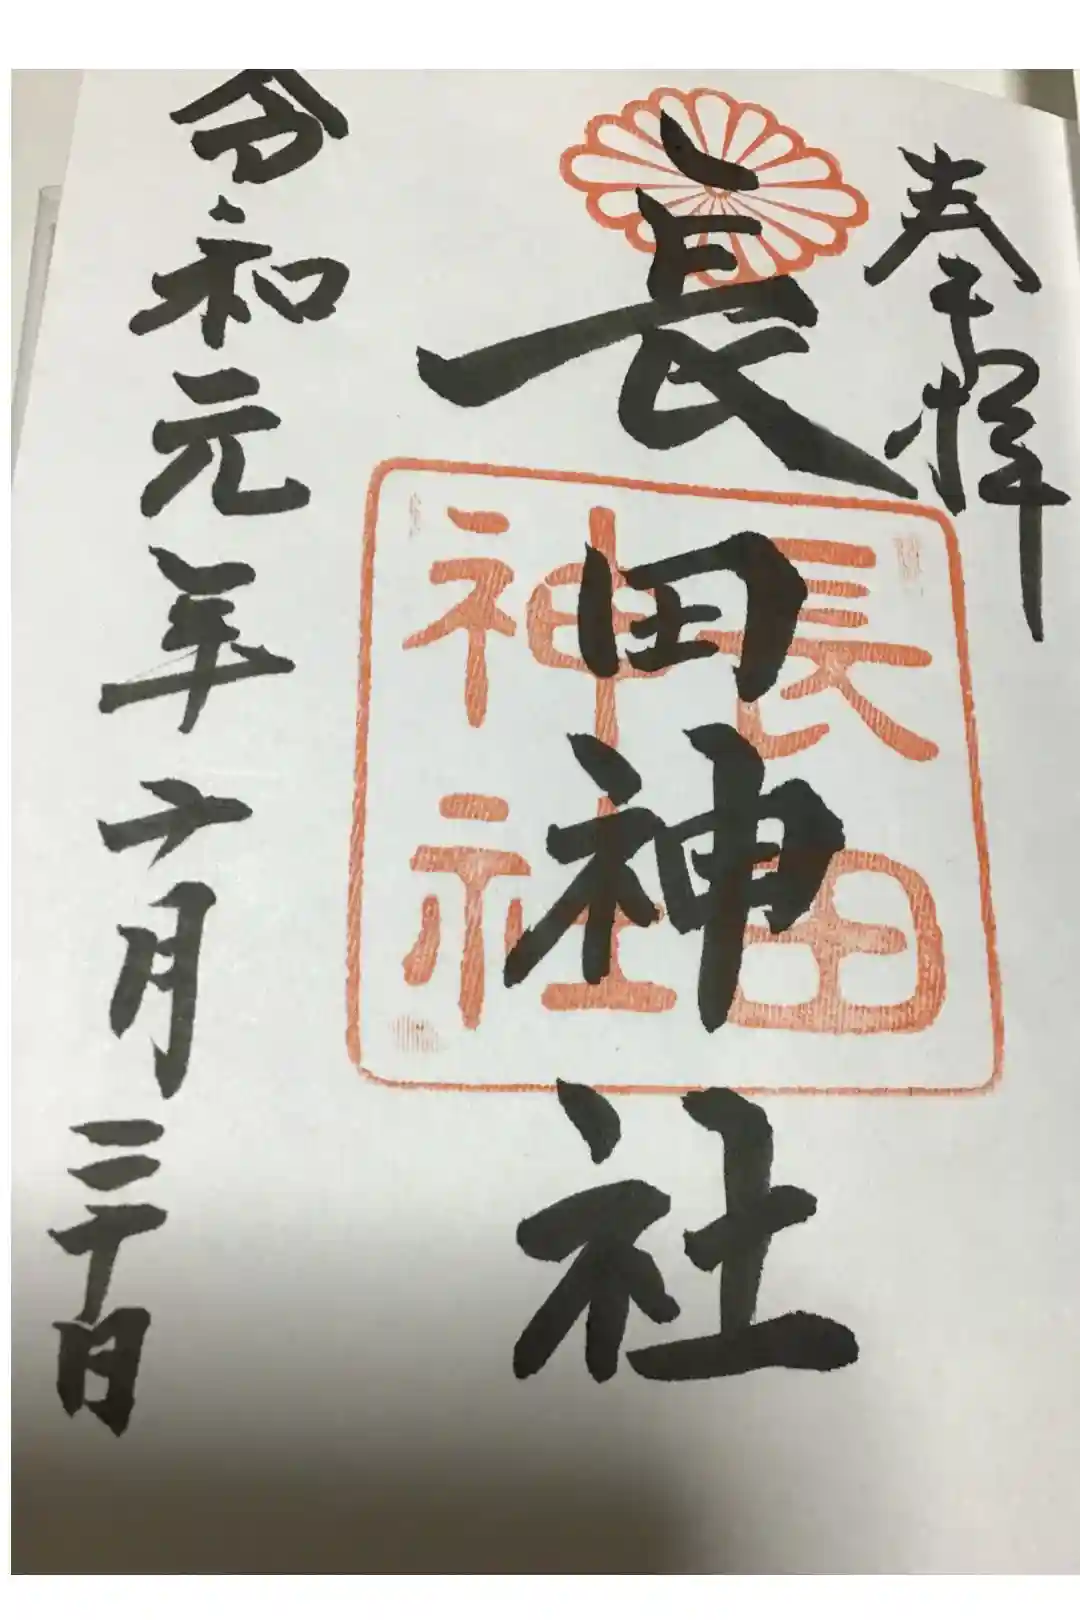 奉拝
長田神社
長田
神社
令和元年六月三十日